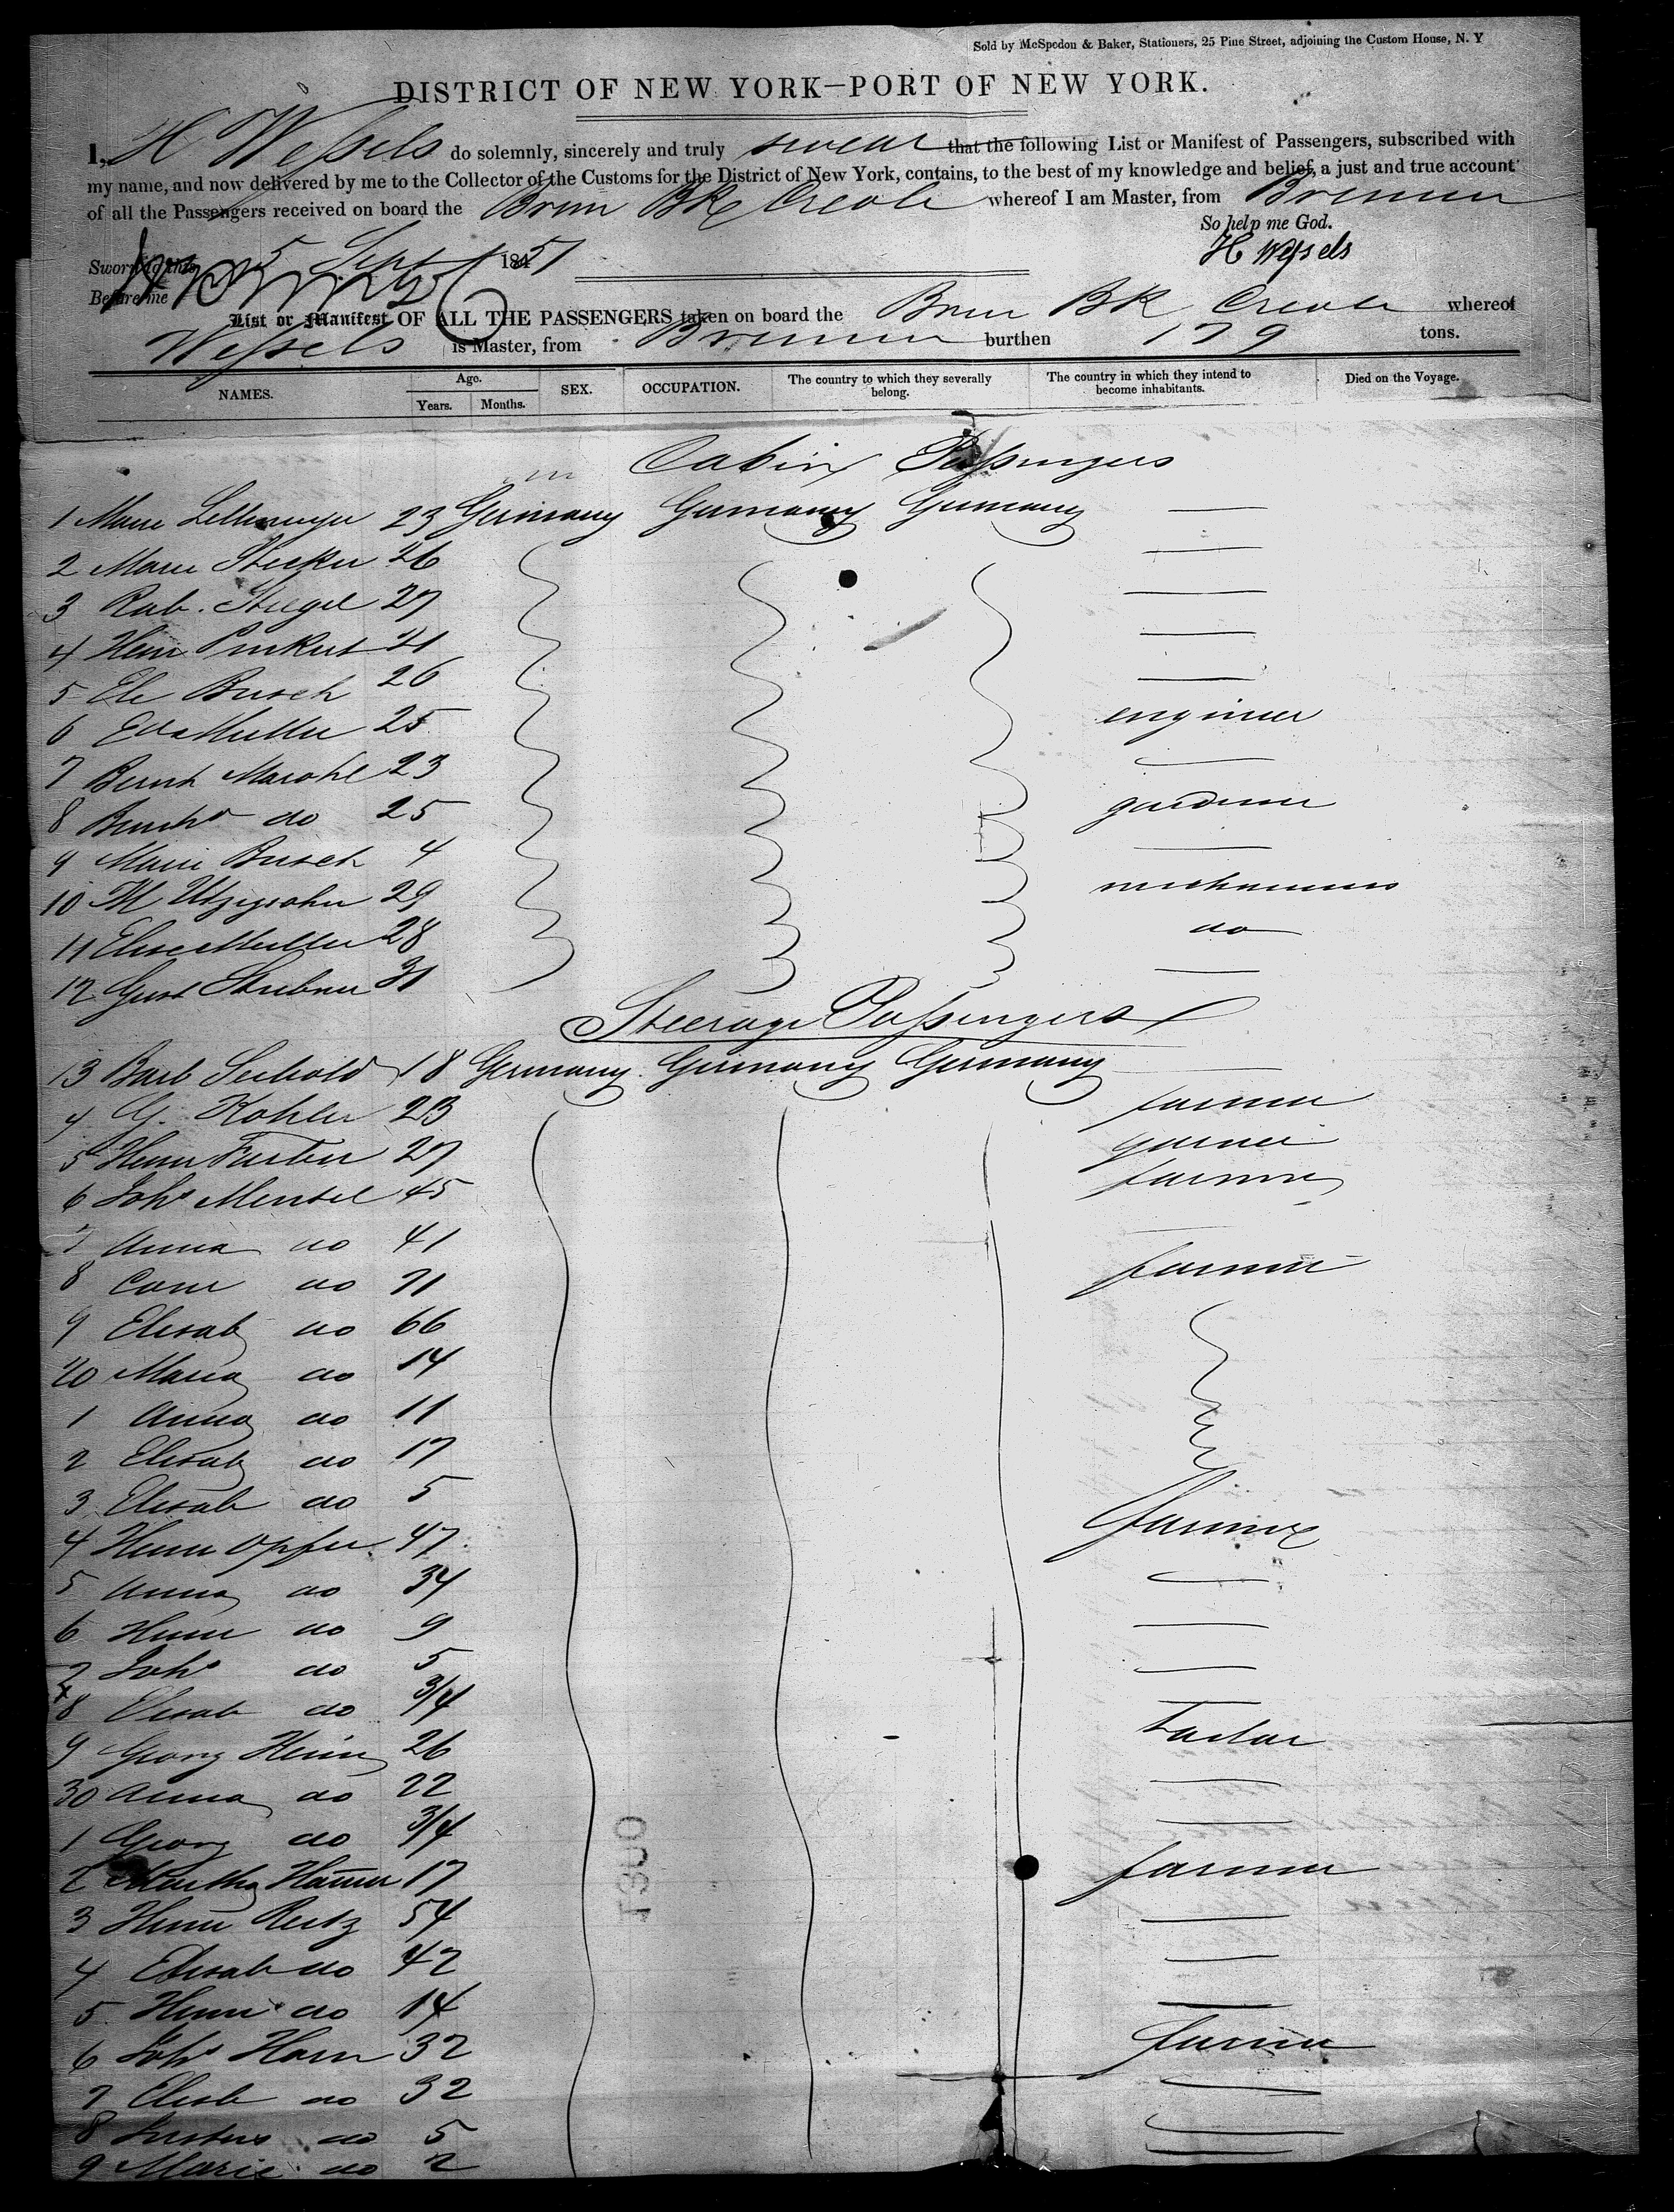 Sold by McSpedon & Baker, Stationers, 25 Pine Street, adjoining the Custom House, N. Y
DISTRICT OF NEW YORK—PORT OF NEW YORK.
I, H Wessels do solemnly, sincerely and truly swear that the following List or Manifest of Passengers, subscribed with
my name, and now delivered by me to the Collector of the Customs for the District of New York, contains, to the best of my knowledge and belief, a just and true account
of all the Passengers received on board the Brem BK Creole whereof I am Master, from Bremen
So help me God.
Sworn to this 5 Sept 1851 H Wessels
Before me
List or Manifest OF ALL THE PASSENGERS taken on board the Brem BK Creole whereof
Wessels is Master, from Bremen burthen 179 tons.
NAMES. Age. Years. Months. SEX. OCCUPATION. The country to which they severally belong. The country in which they intend to become inhabitants. Died on the Voyage.
Cabin Passengers
1 Marie 23 Germany Germany Germany
2 Marie Stecker 26
3 Rab. Stiegel 27
4 Heinr Pinkert 21
5 Ele Busch 26
6 Eva Muller 25 engineer
7 Bernh Marohl 23
8 do 25 gardener
9 Marie Busch 4
10 M 29
11 Elise Muller 28 do
12 Gust Stubner 31
Steerage Passengers
13 Barb Seebold 18 Germany Germany Germany
4 G. Kohler 23 farmer
5 Henr Farber 27
6 Johs Mentel 45 farmer
7 Anna do 41
8 do 71 farmer
9 Elisab do 66
20 Maria do 14
1 Anna do 11
2 Elisab do 17
3 Elisab do 5
4 Henr Opfer 47 farmer
5 Anna do 34
6 Henr do 9
7 Johs do 5
8 Elisab do 3/4
9 Georg Heim 26 Tailor
30 Anna do 22
1 Georg do 3/4
2 Martha Hamer 17 farmer
3 Henr Reitz 54
4 Elisab do 42
5 Henr do 14
6 Johs Horn 32 farmer
7 Elisb do 32
8 Justus do 5
9 Marie do 2